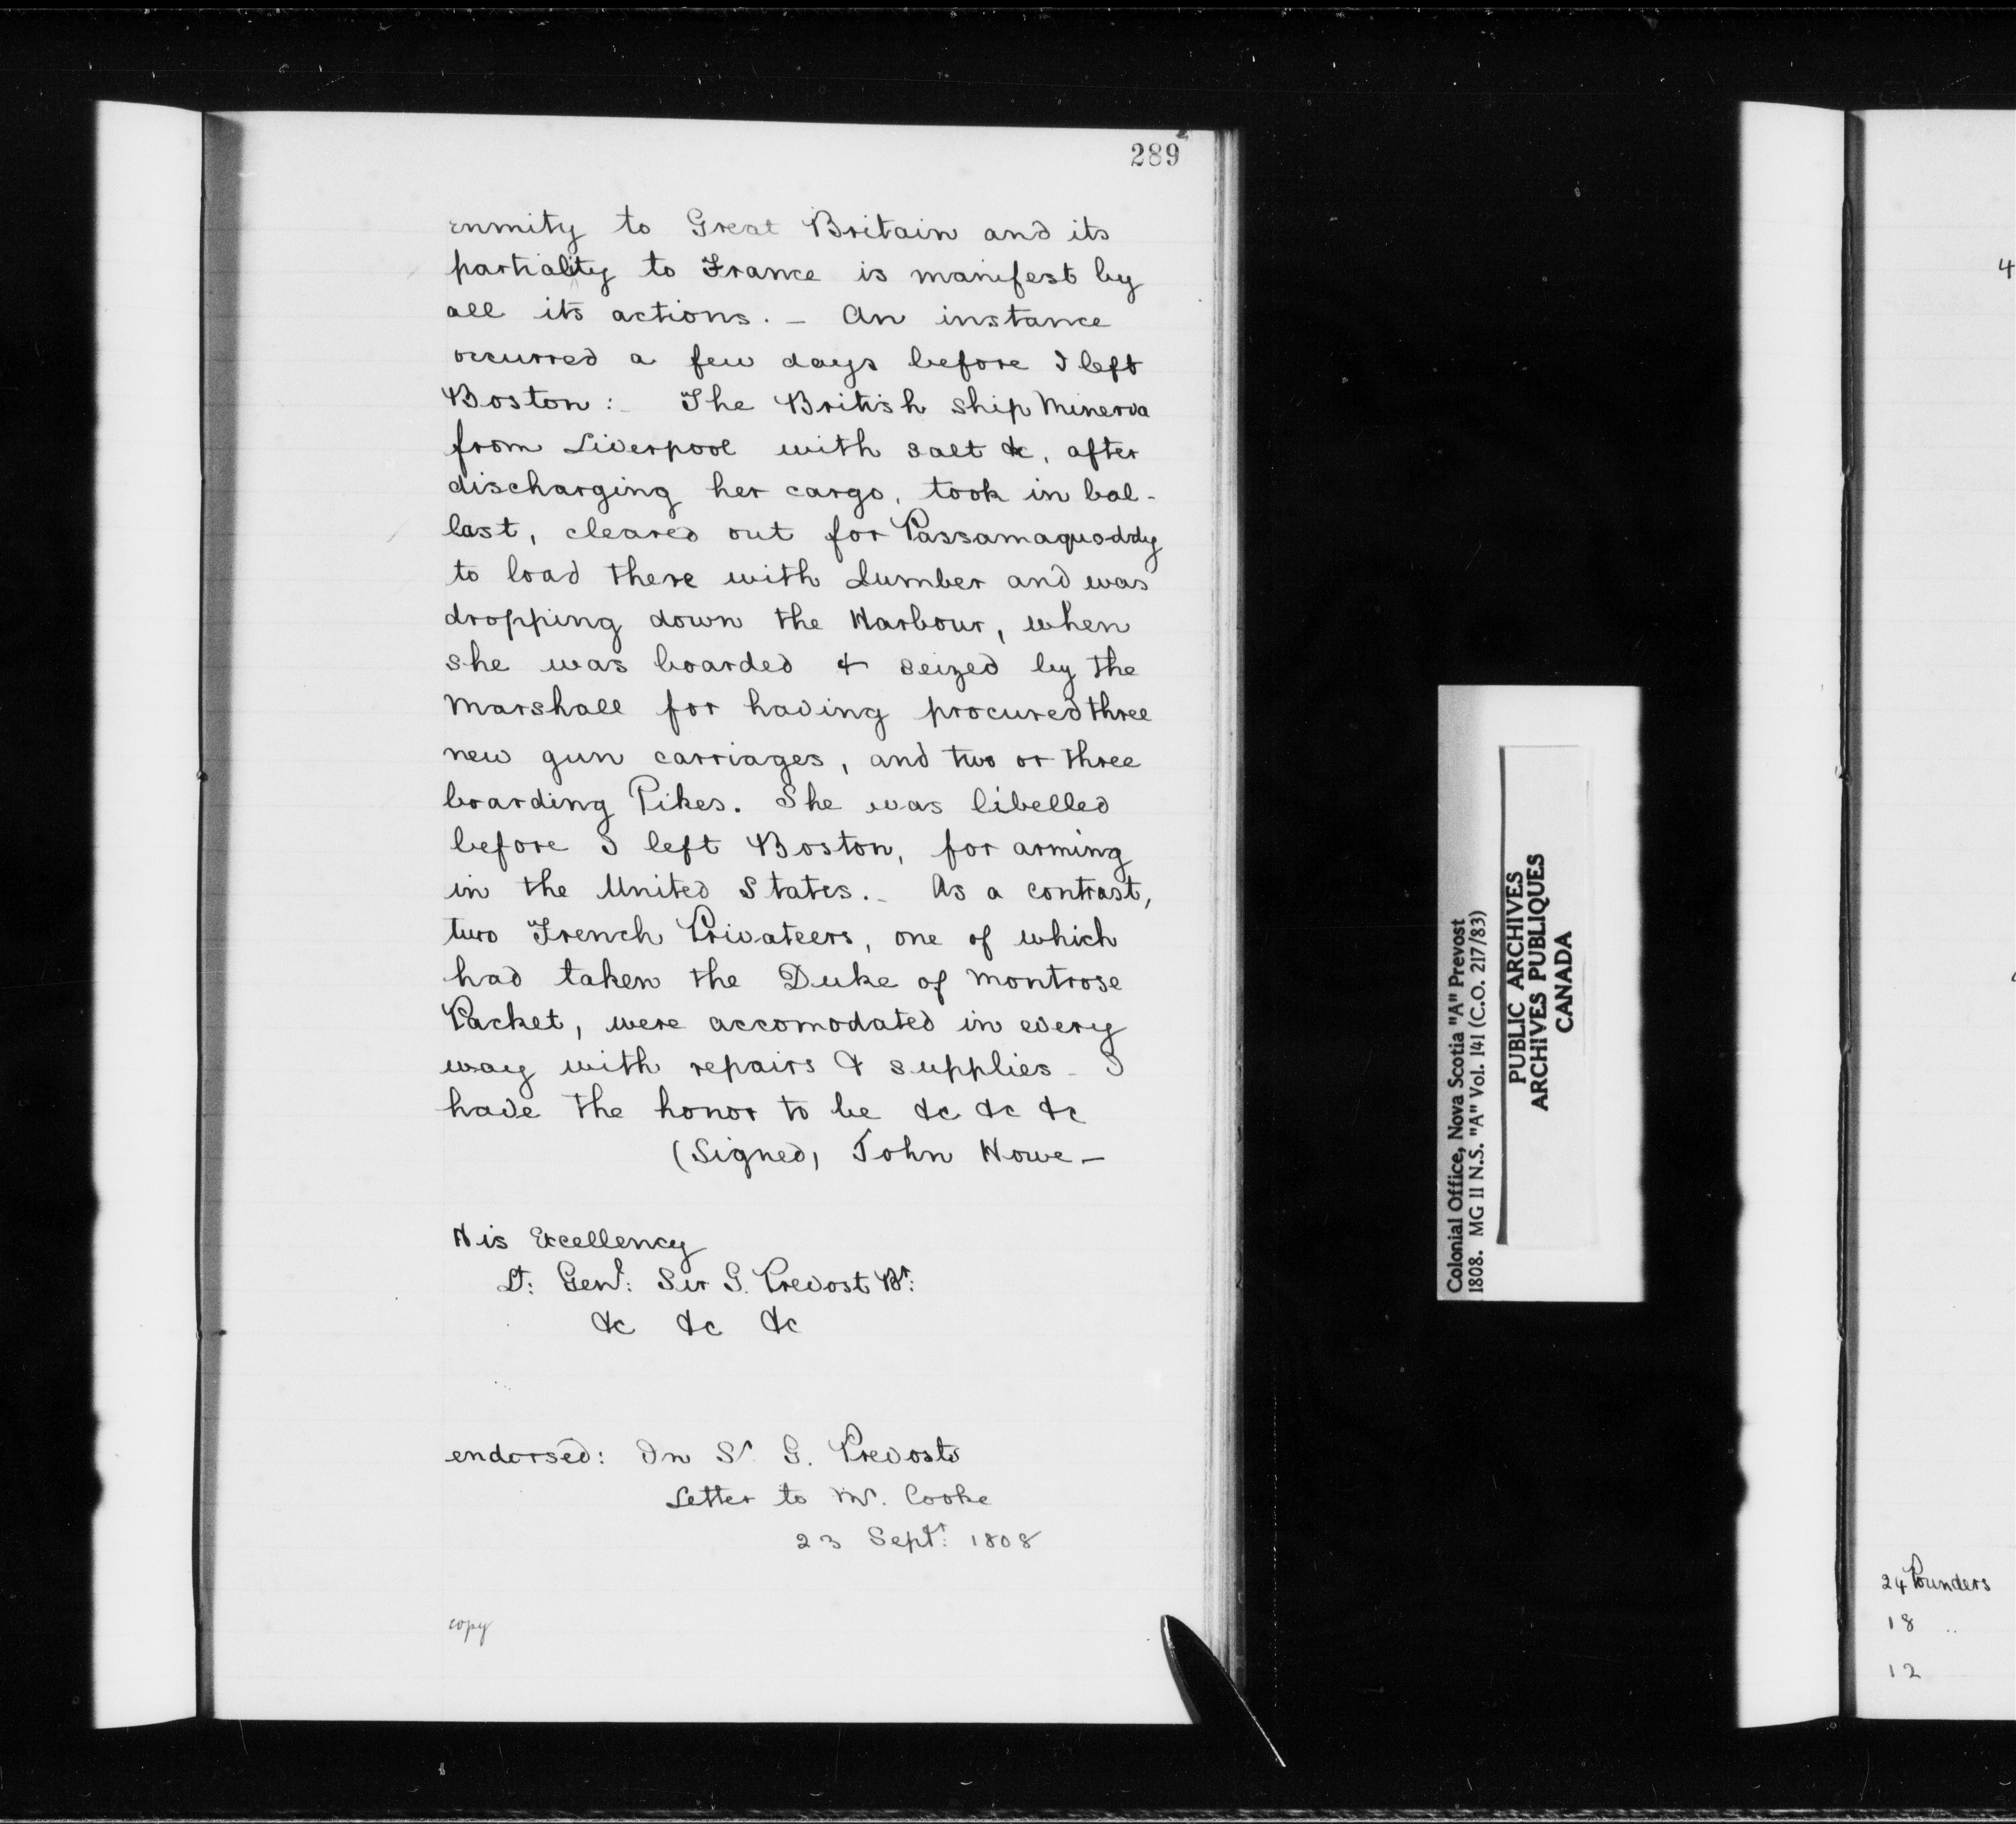 289
enmity to Great Britain and its
partiality to France is manifest by
all its actions. - An instance
occurred a few days before I left
Boston: - The British ship Minerva
from Liverpool with salt &c, after
discharging her cargo, took in bal-
last, cleared out for Passamaquoddy
to load there with Lumber and was
dropping down the Harbour, when
she was boarded & seized by the
Marshall for having procured three
new gun carriages, and two or three
boarding Pikes. She was libelled
before I left Boston, for arming
in the United States. - As a contrast,
two French Privateers, one of which
had taken the Duke of Montrose
Packet, were accomodated in every
way with repairs & supplies - I
have the honor to be &c &c &c
(Signed, John Howe -
His Excellency
Lt: Genl: Sir G. Prevost Bt:
&c &c &c
endorsed: In Sr G. Prevosts
Letter to Mr. Cooke
23 Septr: 1808
copy
Colonial Office, Nova Scotia "A" Prevost
1808. MG 11 N.S. "A" Vol. 141 (C.O. 217/83)
PUBLIC ARCHIVES
ARCHIVES PUBLIQUES
CANADA
4
24 Pounders
18 ..
12